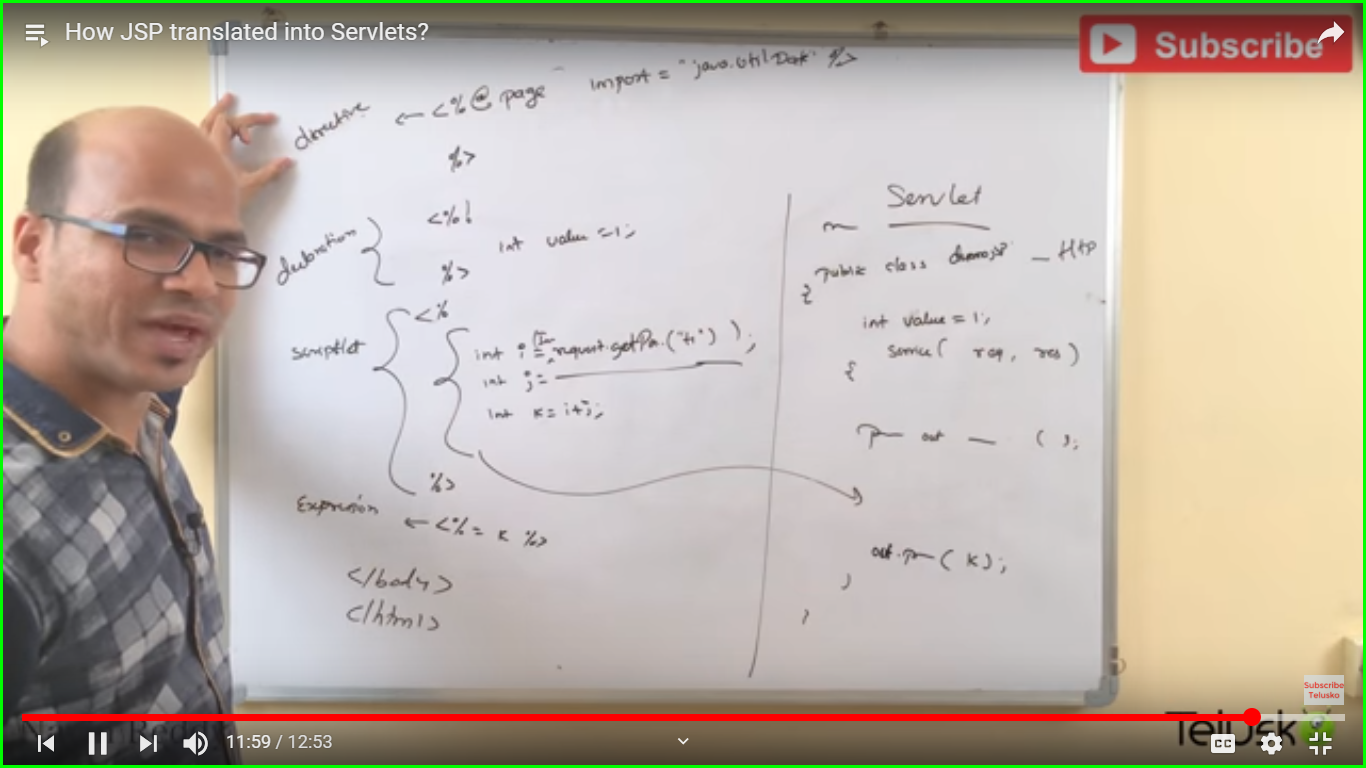 How JSP translated into Servlets?
Subscribe
directive ← <%@ page import = "java.util.Date" %>
%>
<%!
declaration
int value = 1;
%>
scriptlet
<%
int i = request.getPa.("t1") );
int j =
int k = i+j;
%>
Expression ← <%= k %>
</body>
</html>
Servlet
public class demojsp — Http
{
int value = 1;
service( req, res)
{
out — ( );
out.p ( k);
}
}
Subscribe
Telusko
Telusk
11:59 / 12:53
CC